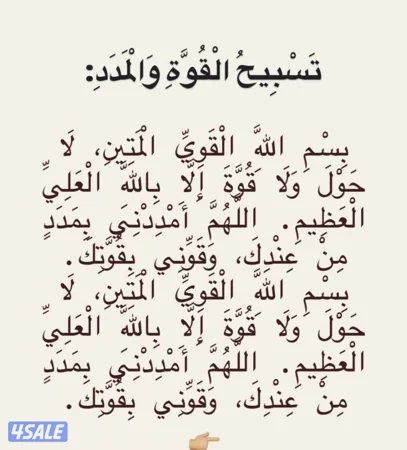 تَسْبِيحُ الْقُوَّةِ وَالْمَدَدِ:
بِسْمِ اللَّهِ الْقَوِيِّ الْمَتِينِ، لَا
حَوْلَ وَلَا قُوَّةَ إِلَّا بِاللَّهِ الْعَلِيِّ
الْعَظِيمِ. اللَّهُمَّ أَمْدِدْنِي بِمَدَدٍ
مِنْ عِنْدِكَ، وَقَوِّنِي بِقُوَّتِكَ.
بِسْمِ اللَّهِ الْقَوِيِّ الْمَتِينِ، لَا
حَوْلَ وَلَا قُوَّةَ إِلَّا بِاللَّهِ الْعَلِيِّ
الْعَظِيمِ. اللَّهُمَّ أَمْدِدْنِي بِمَدَدٍ
مِنْ عِنْدِكَ، وَقَوِّنِي بِقُوَّتِكَ.
4SALE